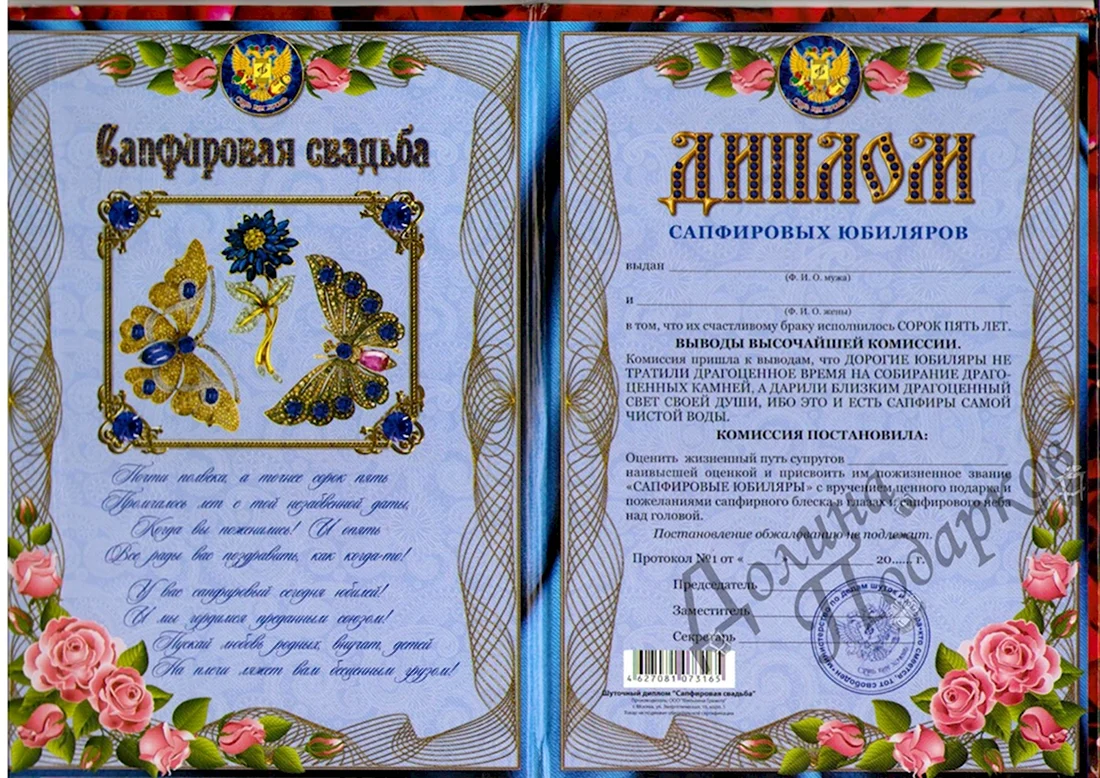 Сапфировая свадьба
Почти полвека, а точнее сорок пять
Промчалось лет с той незабвенной даты,
Когда вы поженились! И опять
Все рады вас поздравить, как когда-то!
У вас сапфировый сегодня юбилей!
И мы гордимся преданным союзом!
Пускай любовь родных, внучат, детей
На плечи ляжет вам бесценным грузом!
ДИПЛОМ
САПФИРОВЫХ ЮБИЛЯРОВ
выдан
(Ф. И. О. мужа)
и
(Ф. И. О. жены)
в том, что их счастливому браку исполнилось СОРОК ПЯТЬ ЛЕТ.
ВЫВОДЫ ВЫСОЧАЙШЕЙ КОМИССИИ.
Комиссия пришла к выводам, что ДОРОГИЕ ЮБИЛЯРЫ НЕ
ТРАТИЛИ ДРАГОЦЕННОЕ ВРЕМЯ НА СОБИРАНИЕ ДРАГО-
ЦЕННЫХ КАМНЕЙ, А ДАРИЛИ БЛИЗКИМ ДРАГОЦЕННЫЙ
СВЕТ СВОЕЙ ДУШИ, ИБО ЭТО И ЕСТЬ САПФИРЫ САМОЙ
ЧИСТОЙ ВОДЫ.
КОМИССИЯ ПОСТАНОВИЛА:
Оценить жизненный путь супругов
наивысшей оценкой и присвоить им пожизненное звание
«САПФИРОВЫЕ ЮБИЛЯРЫ» с вручением ценного подарка и
пожеланиями сапфирного блеска в глазах и сапфирового неба
над головой.
Постановление обжалованию не подлежит.
Протокол №1 от « 20...... г.
Председатель
Заместитель
Секретарь
Долина
Подарков
4 627081 073165
Шуточный диплом "Сапфировая свадьба"